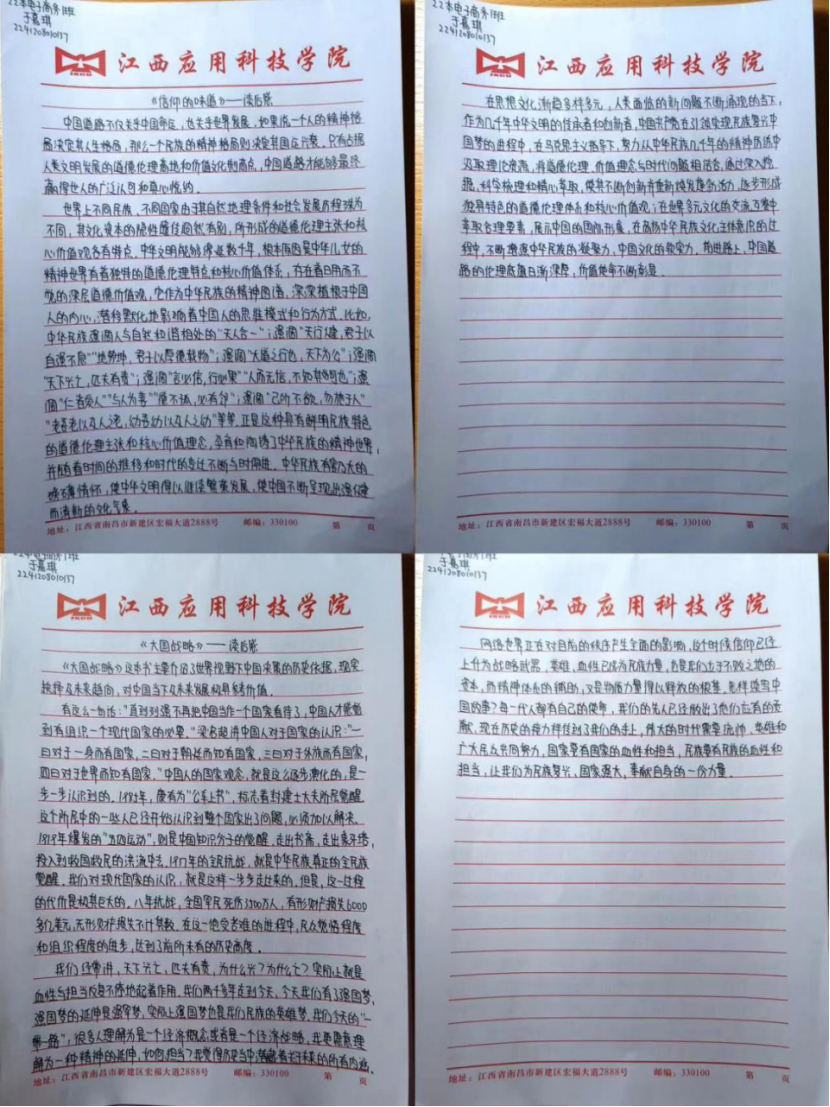 22本电子商务1班
于嘉琪
2241208010137
江西应用科技学院
《信仰的味道》——读后感
中国道路不仅关乎中国命运,也关乎世界发展,如果说一个人的精神格
局决定其人生格局,那么一个民族的精神格局则决定其国运兴衰,只有占据
人类文明发展的道德伦理高地和价值文化制高点,中国道路才能够最终
赢得世人的广泛认可和真心悦纳。
世界上不同民族、不同国家由于其自然地理条件和社会发展历程殊为
不同,其文化资本的脾性属性回然有别,所形成的道德伦理主张和核
心价值观各有特点。中华文明能够绵延数千年,根本原因是中华儿女的
精神世界有着独特的道德伦理特点和核心价值体系,存在着日用而不
觉的深层道德价值观,它作为中华民族的精神图谱,深深植根于中国
人的内心,潜移默化地影响着中国人的思维模式和行为方式,比如,
中华民族强调人与自然和谐相处的“天人合一”;强调“天行健,君子以
自强不息”“地势坤,君子以厚德载物”;强调“大道之行也,天下为公”;强调
“天下兴亡,匹夫有责”;强调“言必信,行必果”“人而无信,不知其可也”;强
调“仁者爱人”“与人为善”“德不孤,必有邻”;强调“己所不欲,勿施于人”
“老吾老以及人之老,幼吾幼以及人之幼”等等,正是这种具有鲜明民族特色
的道德伦理主张和核心价值理念,孕育和陶铸了中华民族的精神世界,
并随着时间的推移和时代的变迁不断与时俱进。中华民族有博大的
情怀,使中华文明得以继续繁荣发展,使中国不断呈现出强健
而清新的文化气象。
地址:江西省南昌市新建区宏福大道2888号 邮编:330100 第 页
22本电子商务1班
于嘉琪
2241208010137
江西应用科技学院
在思想文化渐趋多样多元,人类面临的新问题不断涌现的当下,
作为几千年中华文明的传承者和创新者,中国共产党在引领实现民族复兴中
国梦的进程中,在马克思主义指导下,努力从中华民族几千年的精神历练中
汲取理论资源,将道德伦理、价值理念与时代问题相结合,通过深入挖
掘,科学梳理和精心萃取,使其不断创新并重新焕发蓬勃活力,逐步形成
独具特色的道德伦理体系和核心价值观;在世界多元文化的交流互鉴中
萃取合理要素,展示中国的国际形象,在高扬中华民族文化主体意识的过
程中,不断增添中华民族的凝聚力,中国文化的软实力。前进路上,中国道
路的伦理底蕴日渐深厚,价值使命不断彰显。
地址:江西省南昌市新建区宏福大道2888号 邮编:330100 第 页
22本电子商务1班
于嘉琪
2241208010137
江西应用科技学院
《大国战略》——读后感
《大国战略》这本书主要介绍了世界视野下中国未来的历史依据,现实
抉择及未来趋向,对中国当下及未来发展极具参考价值。
有这么一句话:“直到列强不再把中国当作一个国家看待了,中国人才感觉
到有组识一个现代国家的必要。”梁启超讲中国人对于国家的认识:“一
曰对于一身而有国家,二曰对于朝廷而知有国家,三曰对于外族而有国家,
四曰对于世界而知有国家。”中国人的国家观念,就是这么逐步演化的,是一
步一步认识到的。1895年,康有为“公车上书”,标志着封建士大夫阶层觉醒
这个阶层中的一些人已经开始认识到整个国家出了问题,必须加以解决。
1919年爆发的“五四运动”,则是中国知识分子的觉醒,走出书斋,走出象牙塔,
投入到救国救民的洪流中去。1937年的全民抗战,就是中华民族真正的全民族
觉醒。我们对现代国家的认识,就是这样一步步走过来的。但是,这一过程
的代价是极其巨大的。八年抗战,全国军民死伤3500万人,有形财产损失6000
多亿美元,无形财产损失不计其数。在这一饱受苦难的进程中,民众觉悟程度
和组织程度的进步,达到了前所未有的历史高度。
我们经常讲,天下兴亡,匹夫有责,为什么兴?为什么亡?实际上就是
血性与担当反复不停地起着作用。我们两千多年走到今天,今天我们有了强国梦,
强国梦的延伸是强军梦,实际上强国梦也是我们民族的英雄梦。我们今天的“一
带一路”,很多人理解为是一个经济概念或者是一个经济战略,我更愿意理
解为一种精神的延伸,如何担当?我觉得历史当中涵着关于未来的所有内涵。
地址:江西省南昌市新建区宏福大道2888号 邮编:330100 第 页
于嘉琪
2241208010137
江西应用科技学院
网络世界正在对目前的秩序产生全面的影响,这个时候信仰已经
上升为战略武器。英雄,血性已成为民族力量,也是我们立于不败之地的
资本,而精神体系的辅助,又是物质力量得以释放的根基。怎样续写中
国故事?每一代人都有自己的使命,我们的先人已经做出了他们应有的贡
献,现在历史的接力棒传到了我们的手上,伟大的时代需要统帅、英雄和
广大民众共同努力,国家要有国家的血性和担当,民族要有民族的血性和
担当,让我们为民族复兴,国家强大,奉献自身的一份力量。
地址:江西省南昌市新建区宏福大道2888号 邮编:330100 第 页